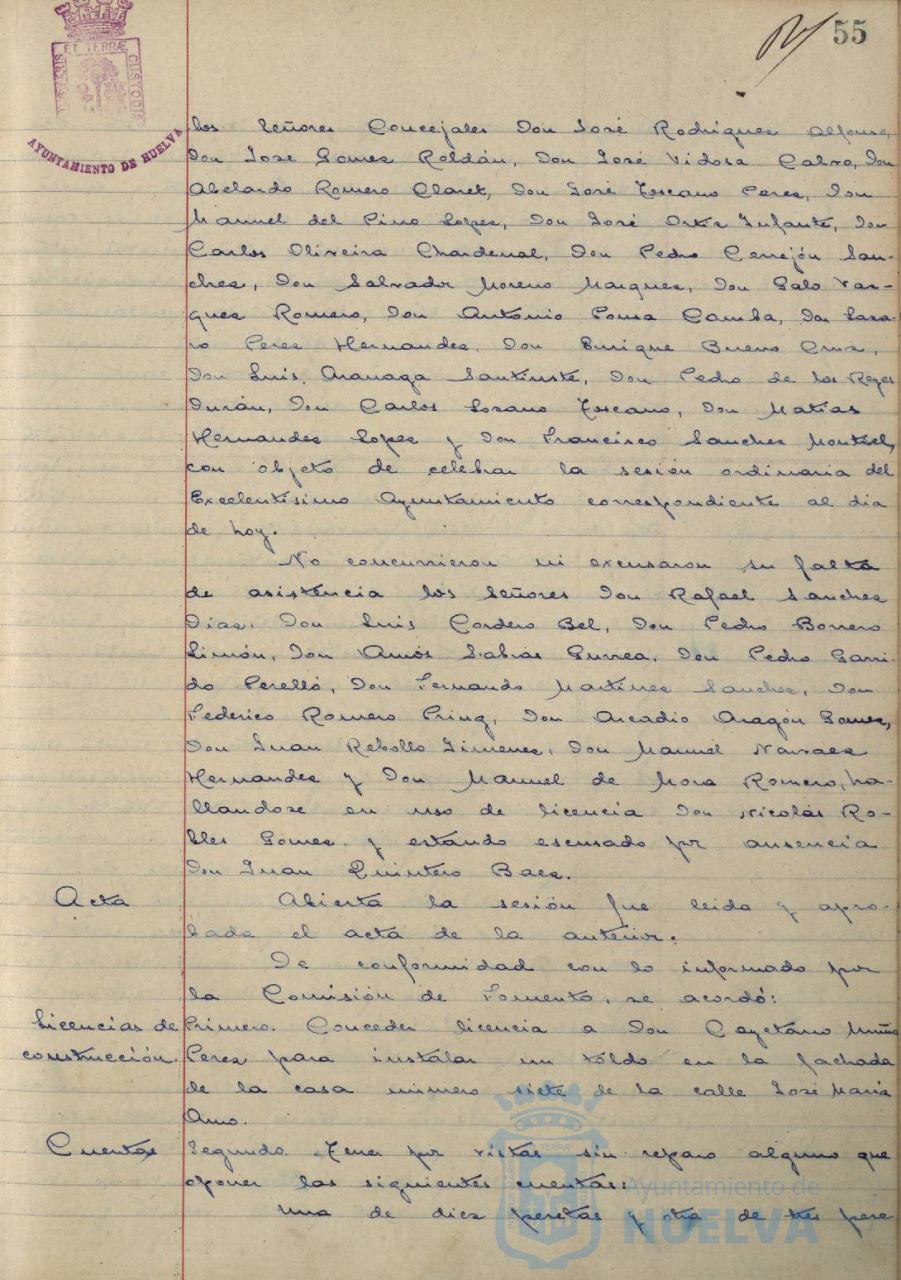 55
PORTUS MARIS ET TERRÆ CUSTODIA
AYUNTAMIENTO DE HUELVA
los Señores Concejales Don José Rodriguez Alfonso,
Don José Gomez Roldán, Don José Vidosa Calvo, Don
Abelardo Romero Claret, Don José Toscano Perez, Don
Manuel del Pino Lopez, Don José Ortiz Infante, Don
Carlos Oliveira Chardenal, Don Pedro Cerrejón San-
chez, Don Salvador Moreno Marquez, Don Galo Vaz-
quez Romero, Don António Ponsa Camba, Don Lasa-
ro Perez Hernandez, Don Enrique Bueno Cruz,
Don Luis Aranaga Santiuste, Don Pedro de los Reyes
Durán, Don Carlos Lozano Toscano, Don Matías
Hernandez Lopez y Don Francisco Sanchez Montiel,
con objeto de celebrar la sesión ordinaria del
Excelentísimo Ayuntamiento correspondiente al dia
de hoy.
No concurrieron ni excusaron su falta
de asistencia los Señores Don Rafael Sanchez
Diaz, Don Luis Cordero Bel, Don Pedro Borrero
Limón, Don Amós Sabrás Gurrea, Don Pedro Garri-
do Perelló, Don Fernando Martinez Sanchez, Don
Federico Romero Pring, Don Arcadio Aragón Gomez,
Don Juan Rebollo Jimenez, Don Manuel Narvaez
Hernandez y Don Manuel de Mora Romero, ha-
llandose en uso de licencia Don Nicolás Ro-
bles Gomez y estando escusado por ausencia
Don Juan Quintero Baez.
Acta
Abierta la sesión fue leida y apro-
bada el acta de la anterior.
De conformidad con lo informado por
la Comisión de Fomento, se acordó:
Licencias de construcción.
Primero. Conceder licencia a Don Cayetano Muñoz
Perez para instalar un toldo en la fachada
de la casa número siete de la calle José María
Amo.
Cuentas
Segundo. Tener por vistas sin reparo alguno que
oponer las siguientes cuentas:
Una de diez pesetas y otra de tres pese
Ayuntamiento de
HUELVA